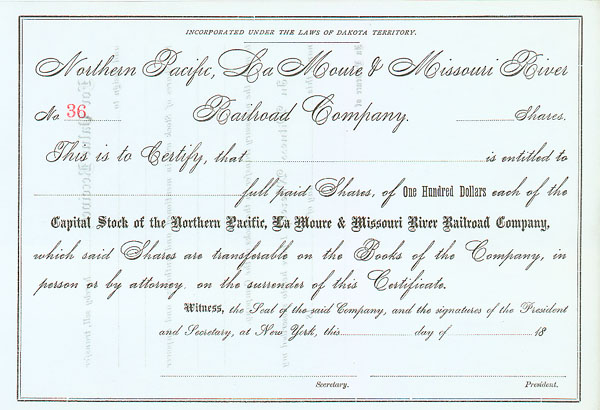 INCORPORATED UNDER THE LAWS OF DAKOTA TERRITORY.
Northern Pacific, La Moure & Missouri River
No 36 Railroad Company. Shares.
This is to Certify, that is entitled to
full paid Shares, of One Hundred Dollars each of the
Capital Stock of the Northern Pacific, La Moure & Missouri River Railroad Company,
which said Shares are transferable on the Books of the Company, in
person or by attorney on the surrender of this Certificate.
Witness, the Seal of the said Company, and the signatures of the President
and Secretary, at New York, this day of 18
Secretary. President.